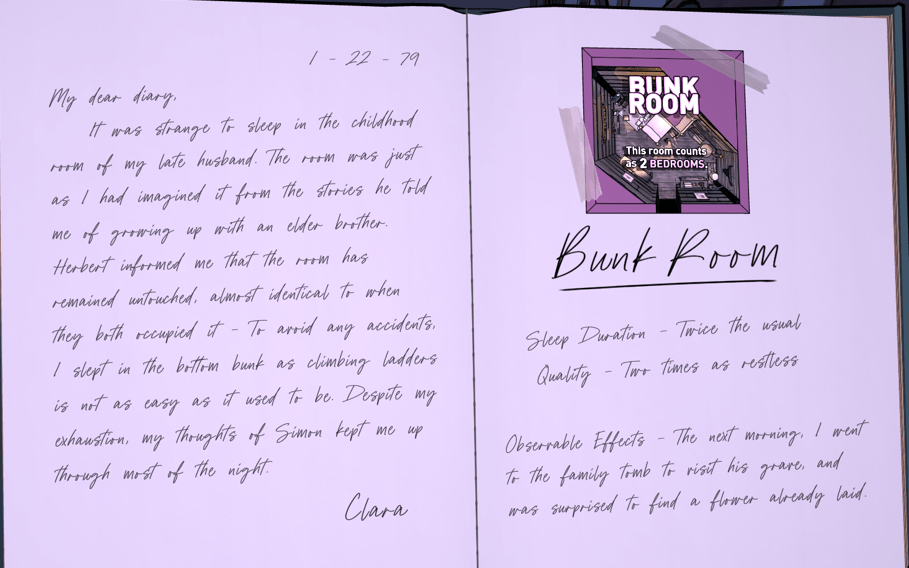 1 - 22 - 79
My dear diary,
It was strange to sleep in the childhood
room of my late husband. The room was just
as I had imagined it from the stories he told
me of growing up with an elder brother.
Herbert informed me that the room has
remained untouched, almost identical to when
they both occupied it - To avoid any accidents,
I slept in the bottom bunk as climbing ladders
is not as easy as it used to be. Despite my
exhaustion, my thoughts of Simon kept me up
through most of the night.
Clara
BUNK
ROOM
This room counts
as 2 BEDROOMS.
Bunk Room
Sleep Duration - Twice the usual
Quality - Two times as restless
Observable Effects - The next morning, I went
to the family tomb to visit his grave, and
was surprised to find a flower already laid.